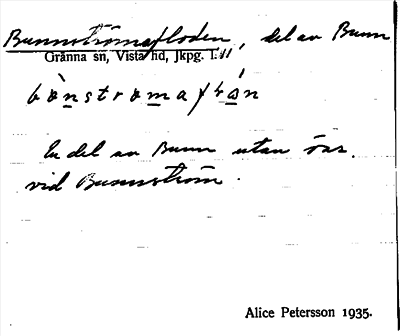 Bunnströmafloden, del av Bunn
Gränna sn, Vista hd, Jkpg. l.
En del av Bunn utan öar
vid Bunnström.
Alice Petersson 1935.